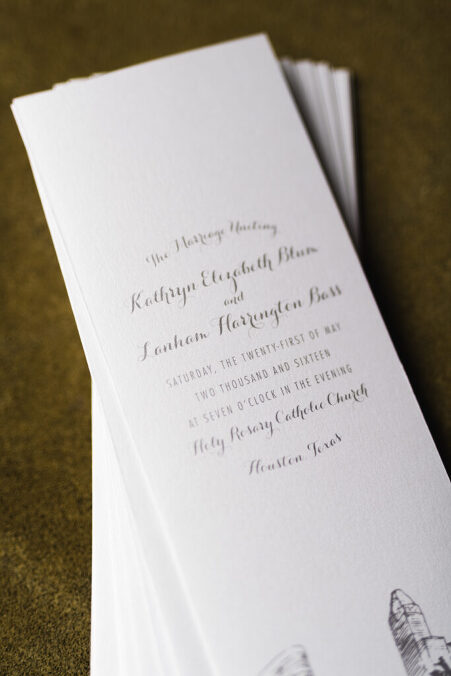 The Marriage Uniting
Kathryn Elizabeth Blum
and
Lanham Harrington Bass
SATURDAY, THE TWENTY-FIRST OF MAY
TWO THOUSAND AND SIXTEEN
AT SEVEN O'CLOCK IN THE EVENING
Holy Rosary Catholic Church
Houston, Texas